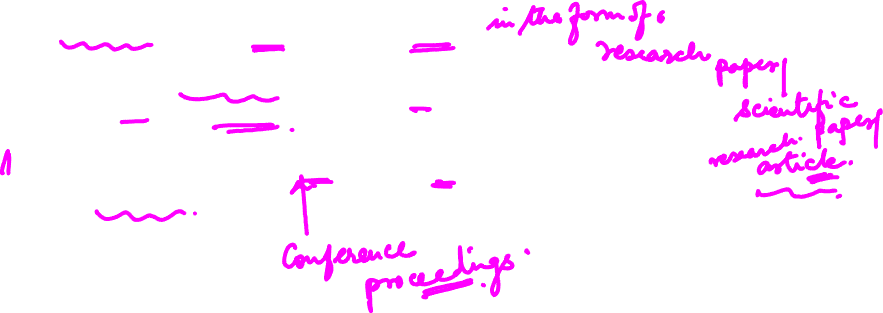 in the form of a
research
paper/
scientific
paper/
research
article.
Conference
proceedings.